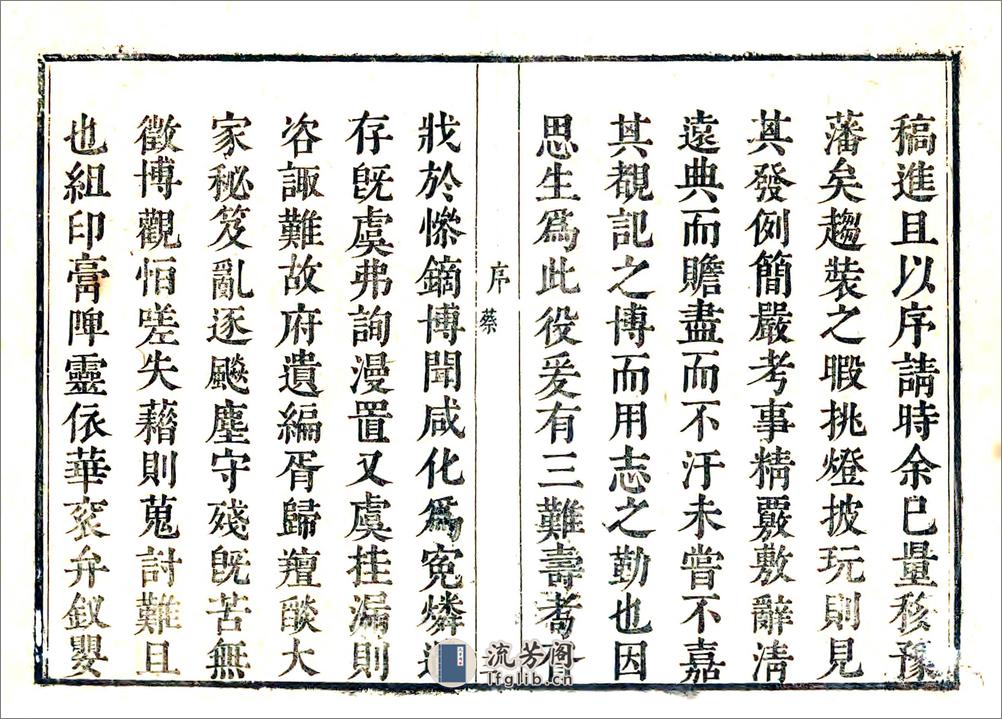 稿進且以序請時余已量移豫
藩矣趨裝之暇挑燈披玩則見
其發例簡嚴考事精覈敷辭淸
遠典而贍盡而不汙未嘗不嘉
其覩記之博而用志之勤也因
思生爲此役爰有三難壽
序 蔡
戕於慘鏑博聞咸化爲寃燐
存旣虞弗詢漫置又虞挂漏則
咨諏難故府遺編胥歸羶燄大
家秘笈亂逐飈塵守殘旣苦無
徵博觀恒嗟失藉則蒐討難且
也組印膏陴靈依華衮弁釵嬰
流芳阁
lfglib.cn